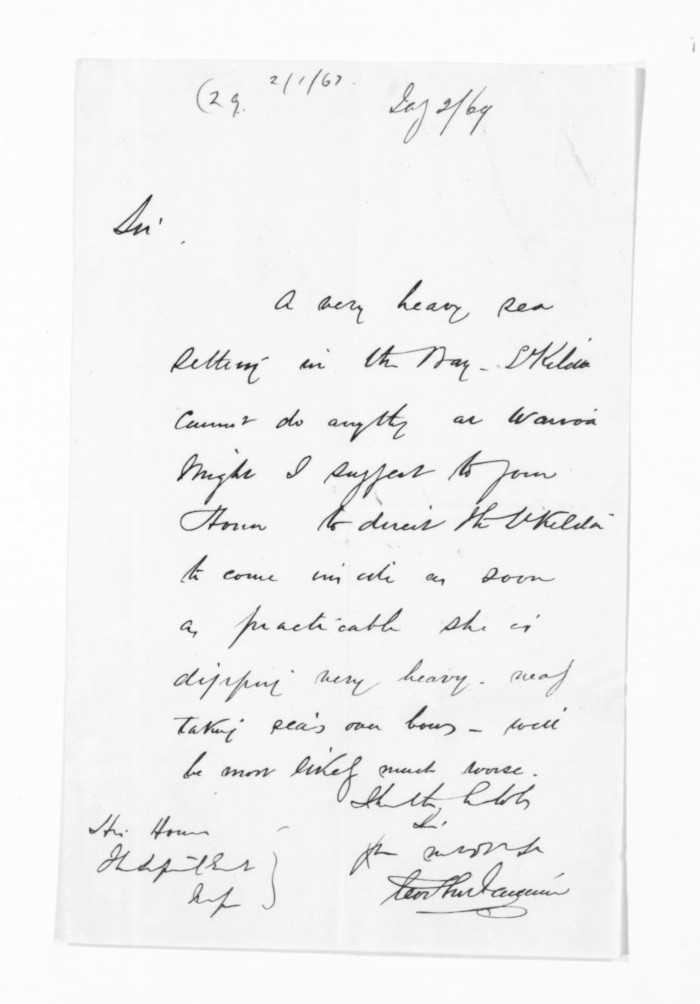 (29.
2/1/69.
Jay 2/69
Sir
A very heavy sea
setting in the Bay - St Kilda
cannot do anythg at Wairoa
Might I suggest to your
Honor to direct the St Kilda
to come inside as soon
as practicable she is
dipping very heavy. nealy
taking sea's over bows - will
be most likely much worse.
I have the honor to be
Sir
His Honor
The Superintendent
Napier